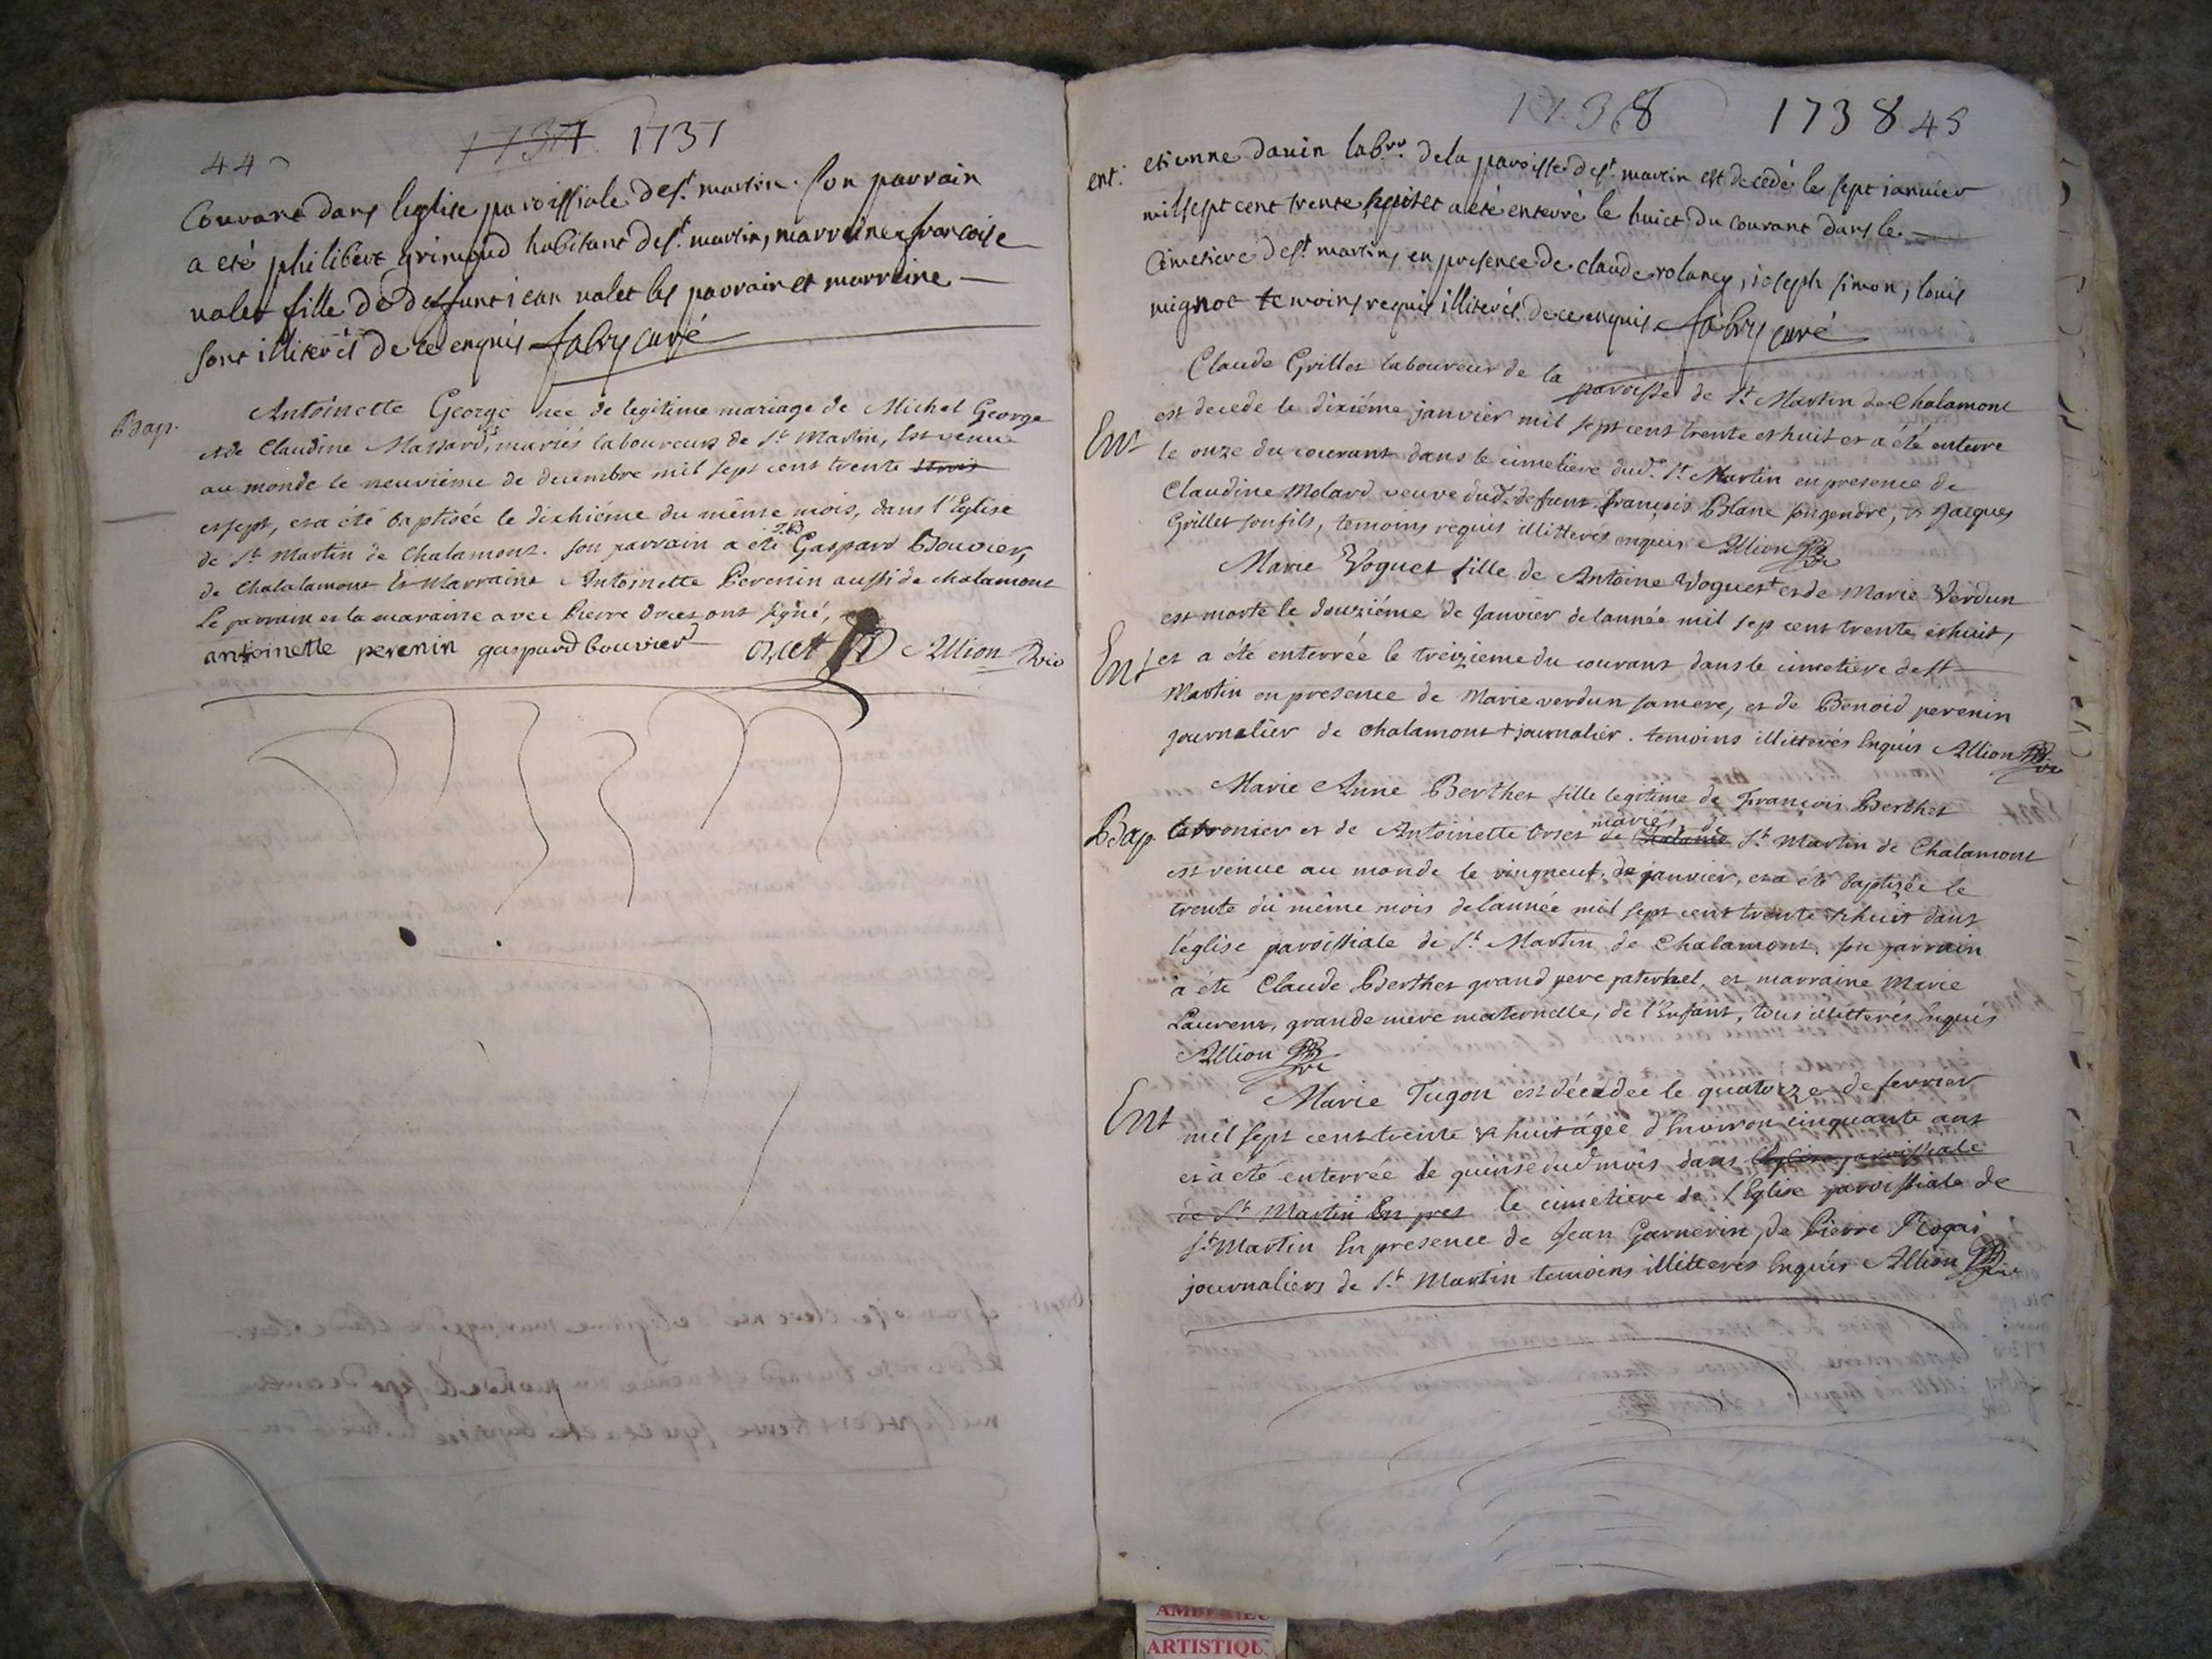 44
1737 1737
Couvant dans leglise paroissiale de st. martin. son parrain
a eté philibert grimaud habitant de st. martin, marraine francoise
valet fille de deffunt iean valet les parrain et marraine
sont illiterés de ce enquis fabry curé
Bap.
Antoinette George née de legitime mariage de Michel George
et de Claudine Massard, mariés laboureurs de St Martin, est venue
au monde le neuviéme de decembre mil sept cent trente
et sept, et a été baptisée le dixhiéme du même mois, dans l'Eglise
de St Martin de Chalamont. son parrain a été Gaspard Bouvier,
de Chalalamont Et Marraine Antoinette Perenin aussi de chalamont
Le parrain et la maraine avec Pierre Orset ont signé,
antoinette perenin gaspard bouvier orset Allion Vic
1738 1738 45
ent: etienne dauin labr. de la paroisse de st. martin est decedé le sept ianvier
mil sept cent trente huit et a eté enterré le huict du courant dans le
Cimetiere de st. martin, en presence de claude rolancy, ioseph simon, louis
mignot temoins requis illiterés de ce enquis fabry curé
Claude Grillet laboureur de la paroisse de St. Martin de Chalamont
est decede le dixiéme janvier mil sept cent trente et huit et a été enterre
Ent le onze du courant dans le cimetiere dud. St Martin en presence de
Claudine Molard veuve dud. defunt, françois Blanc son gendre, & Jacques
Grillet son fils, temoins requis illitterés enquis Allion
Marie Voguet fille de Antoine Voguet et de Marie Verdun
est morte le douziéme de Janvier de lannée mil sep cent trente et huit,
Ent et a été enterrée le treizieme du courant dans le cimetiere de st
Martin en presence de Marie verdun sa mere, et de Benoid perenin
journalier de chalamont + journalier. temoins illitterés Enquis Allion
Marie Anne Berthet fille legitime de François Berthet
mariés de
Bap. et de Antoinette Orset de St Martin de Chalamont
est venue au monde le vingneuf de janvier, et a été baptisée le
trente du même mois de lannée mil sept cent trente & huit dans
l'église paroissiale de St. Martin de Chalamont. son parrain
à été Claude Berthet grand pere paternel, et marraine Marie
Laurent, grande mere maternelle, de l'Enfant, tous illitterés Enquis
Allion
Marie Tugon est décedee le quatorze de fevrier
Ent mil sept cent trente & huit agée d'Environ cinquante ans
et à été enterrée le quinse dud mois dans l'Eglise paroissiale
de St Martin En pres le cimetiere de l'Eglise paroissiale de
St Martin En presence de Jean Garnerin, de Pierre Rogai
journaliers de St Martin temoins illitterés Enquis Allion
ARTISTIQU